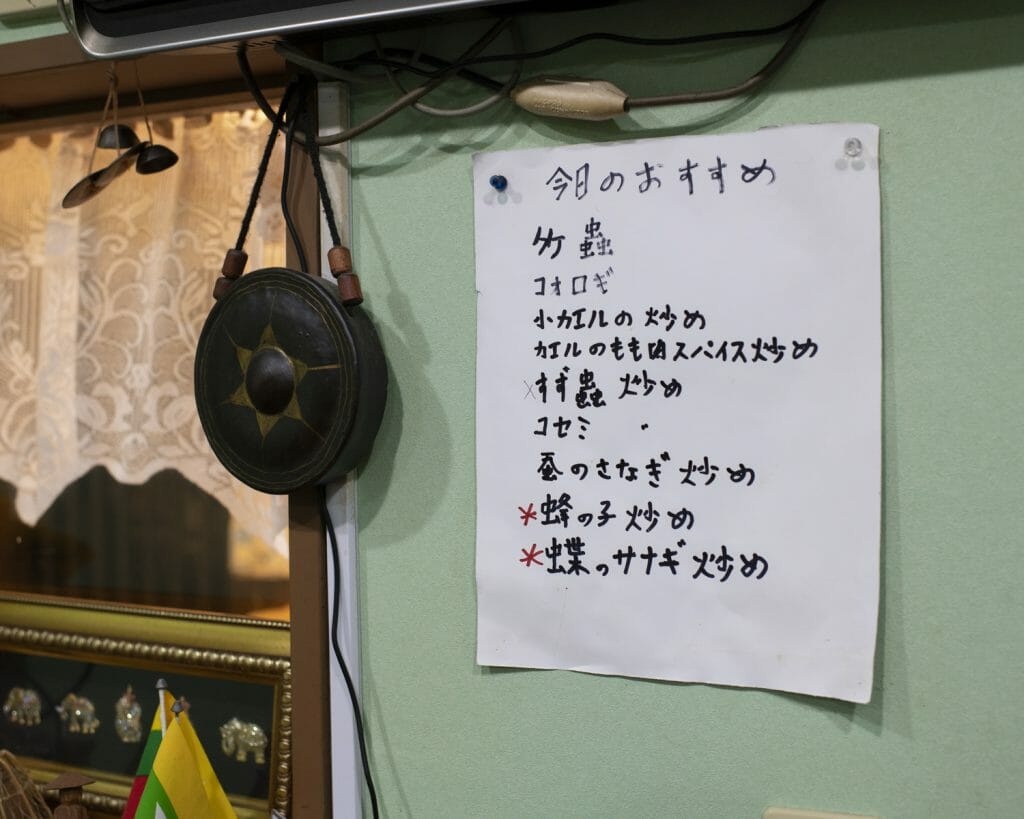 今日のおすすめ
竹蟲
コオロギ
小カエルの炒め
カエルのもも肉スパイス炒め
×すず蟲炒め
コセミ 〃
蚕のさなぎ炒め
*蜂の子炒め
*蝶のサナギ炒め